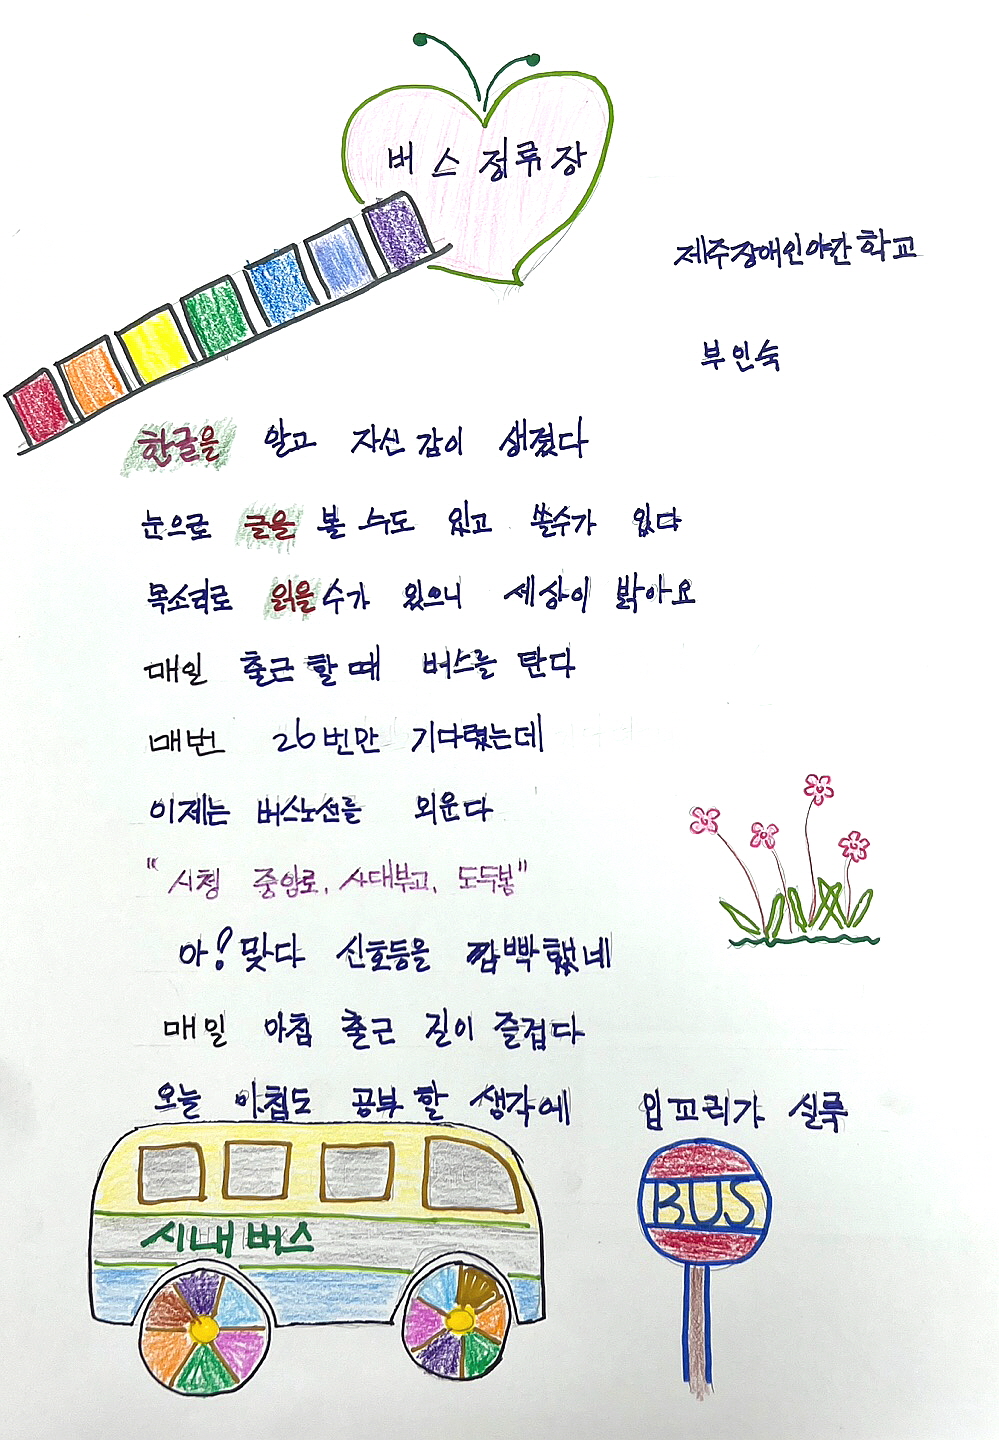 버스 정류장
제주장애인야간학교
부인숙
한글을 알고 자신감이 생겼다
눈으로 글을 볼 수도 있고 쓸수가 있다
목소리로 읽을 수가 있으니 세상이 밝아요
매일 출근 할 때 버스를 탄다
매번 26번만 기다렸는데
이제는 버스노선를 외운다
"시청 중앙로, 사대부고, 도두봉"
아! 맞다 신호등을 깜빡했네
매일 아침 출근 길이 즐겁다
오늘 아침도 공부 할 생각에 입꼬리가 실룩
시내버스
BUS